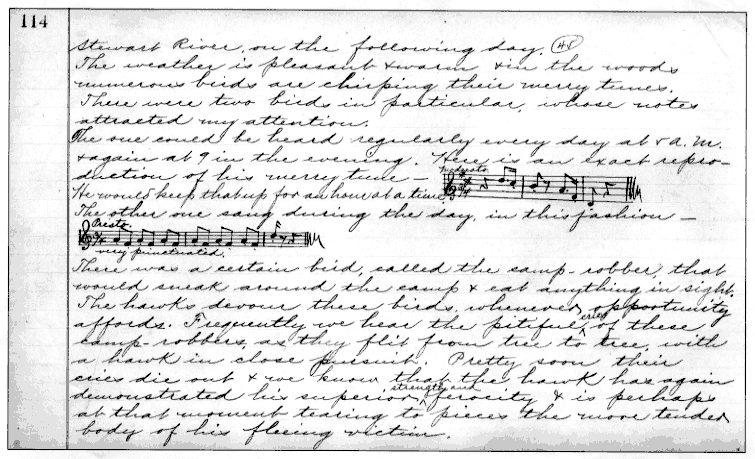 114
Stewart River, on the following day. (48)
The weather is pleasant & warm & in the woods
numerous birds are chirping their merry tunes.
There were two birds in particular, whose notes
attracted my attention.
The one could be heard regularly every day at 5 A.M.
& again at 9 in the evening. Here is an exact repro-
duction of his merry tune —
He would keep that up for an hour at a time.
The other one sang during the day, in this fashion —
Presto.
very punctuated.
There was a certain bird, called the camp-robber, that
would sneak around the camp & eat anything in sight.
The hawks devour these birds, whenever opportunity
affords. Frequently we hear the pitiful cries of these
camp-robbers, as they flit from tree to tree, with
a hawk in close pursuit. Pretty soon their
cries die out & we know that the hawk has again
demonstrated his superior strength and ferocity & is perhaps
at that moment tearing to pieces the more tender
body of his fleeing victim.